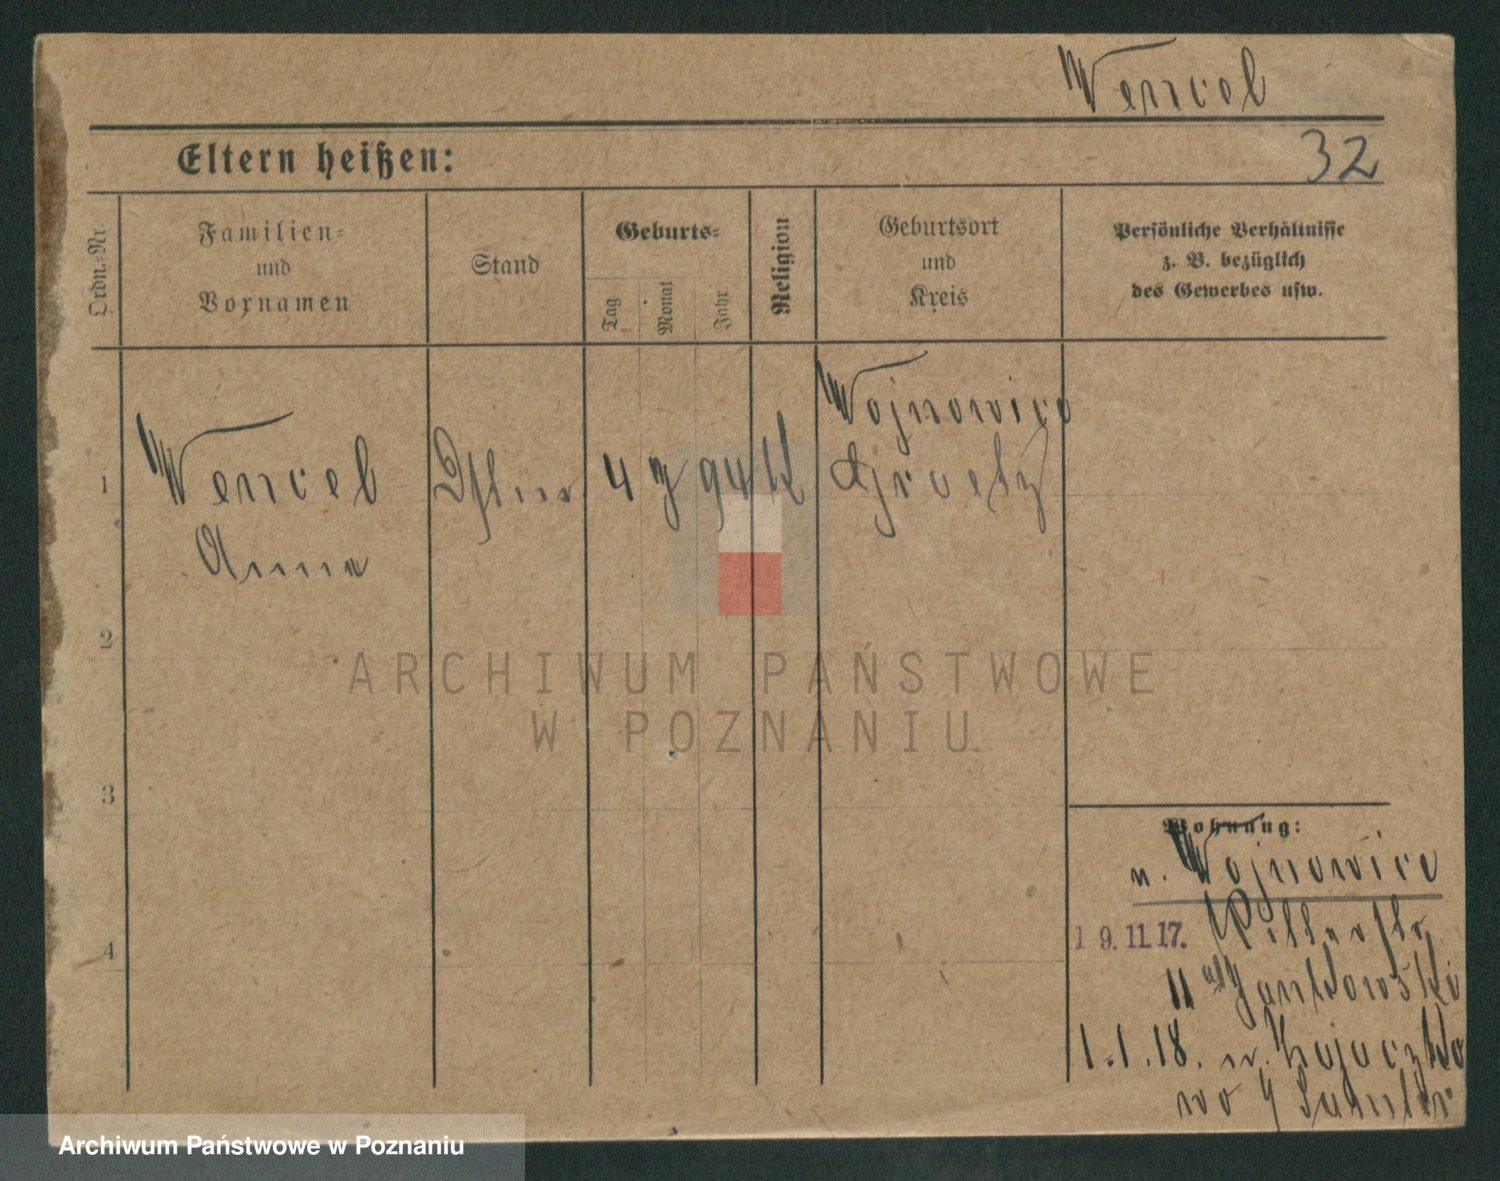 Wencel
Eltern heißen:
32
Ordn.-Nr
Familien-
und
Vornamen
Stand
Geburts-
Tag
Monat
Jahr
Religion
Geburtsort
und
Kreis
Persönliche Verhältnisse
z. B. bezüglich
des Gewerbes usw.
1
Wencel
Anna
4 7 94 K
Wojnowice
Graetz
2
3
4
ARCHIWUM PAŃSTWOWE
W POZNANIU
Wohnung:
n. Wojnowice
19.11.17. Ritterstr
11 Jankowski
1.1.18. n. Kujaczko
wo Samter
Archiwum Państwowe w Poznaniu